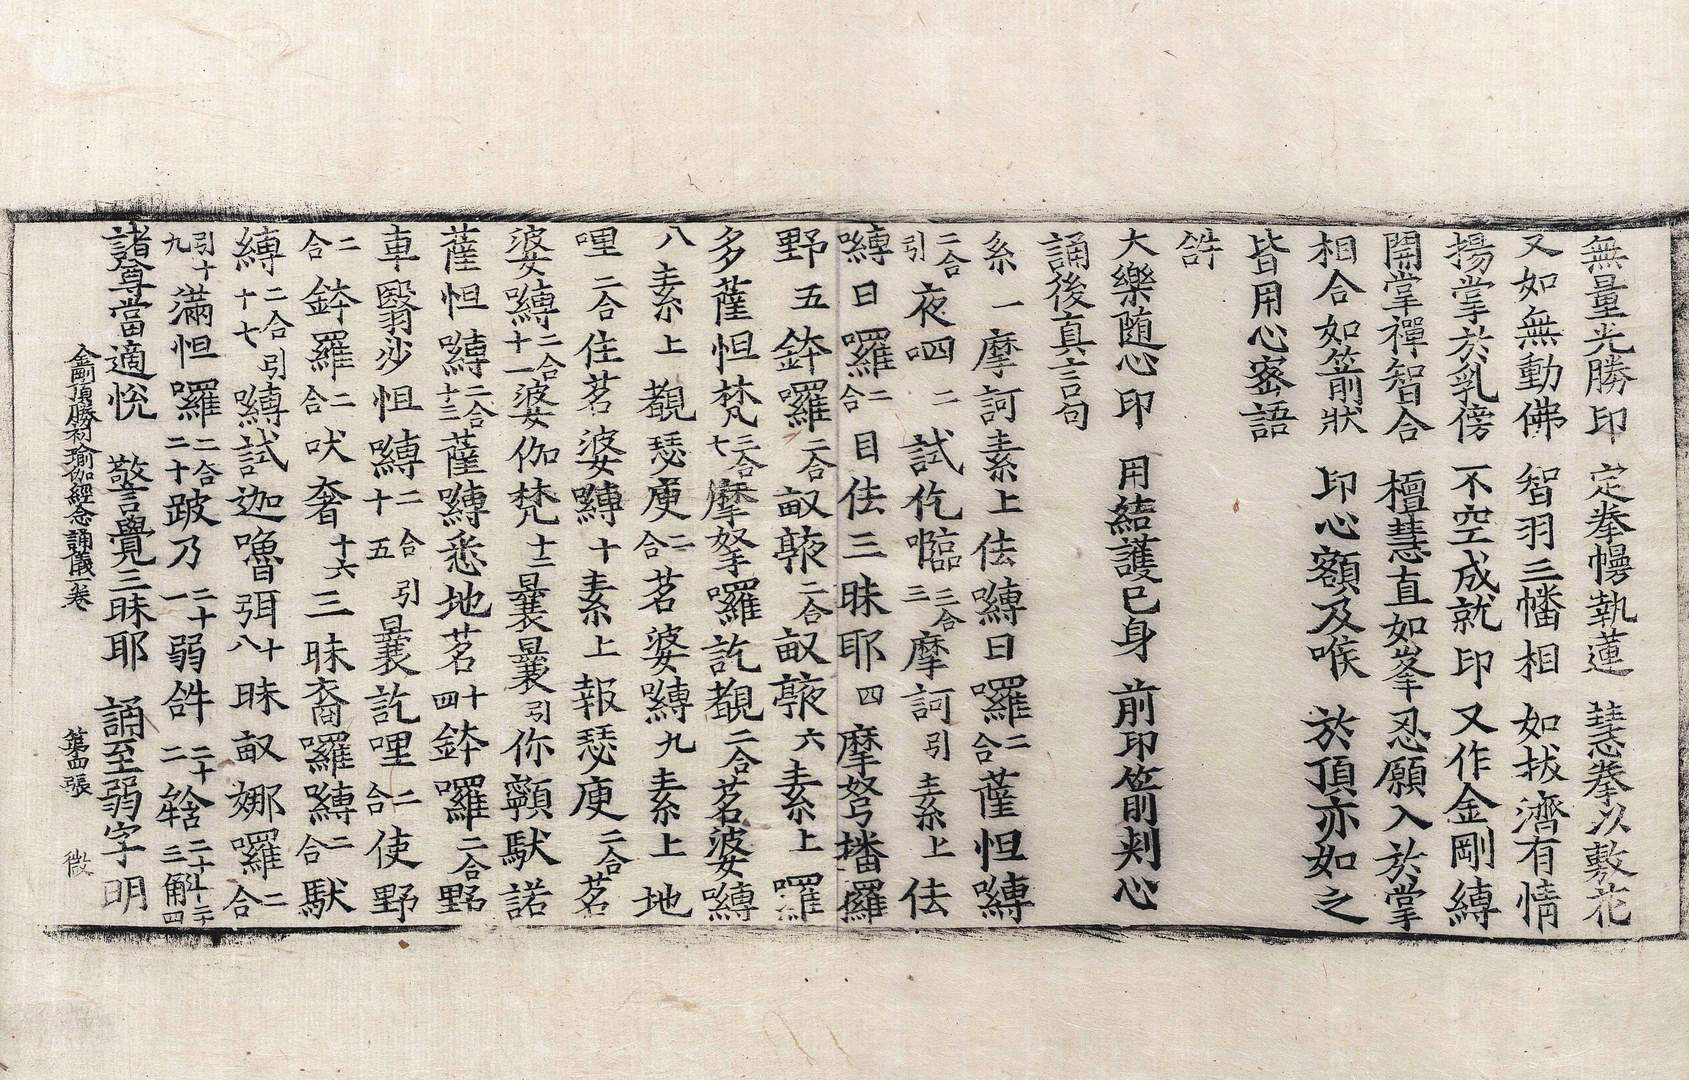 無量光勝印 定拳幔執蓮 慧拳以敷花
又如無動佛 智羽三幡相 如拔濟有情
揚掌於乳傍 不空成就印 又作金剛縛
開掌禪智合 檀慧直如峯 忍願入於掌
相合如箭狀 印心額及喉 於頂亦如之
皆用心密語
𤙖
大樂隨心印 用結護已身 前印箭刾心
誦後真言句
系一摩訶素上佉嚩日囉二合薩怛嚩
二合引夜呬二試仡𡄦三合三摩訶引素上佉
嚩日囉二合目佉三昧耶四摩弩播羅
野五鉢囉二合䫂二合六素上囉
多薩怛梵三合七摩拏囉訖覩二合茗婆嚩
八素上覩瑟庾二合茗婆嚩九素上地
哩二合住茗婆嚩十素上報瑟庾二合茗
婆嚩二合十一婆伽梵十二曩曩引你顊馱諾
薩怛嚩二合十三薩嚩悉地茗十四鉢囉二合野
車翳沙怛嚩二合十五引曩訖哩二合使野
二合鉢羅二合吠奢十六三昧裔囉嚩二合馱
嚩二合引十七嚩試迦嚕弭十八昧㕞娜囉二合
引十九滿怛囉二合二十跛乃二十一弱𤙖二十二
諸尊當適悅 敬言覺三昧耶 誦至弱字明
金剛頂勝初瑜伽經念誦儀一卷 第四張 微